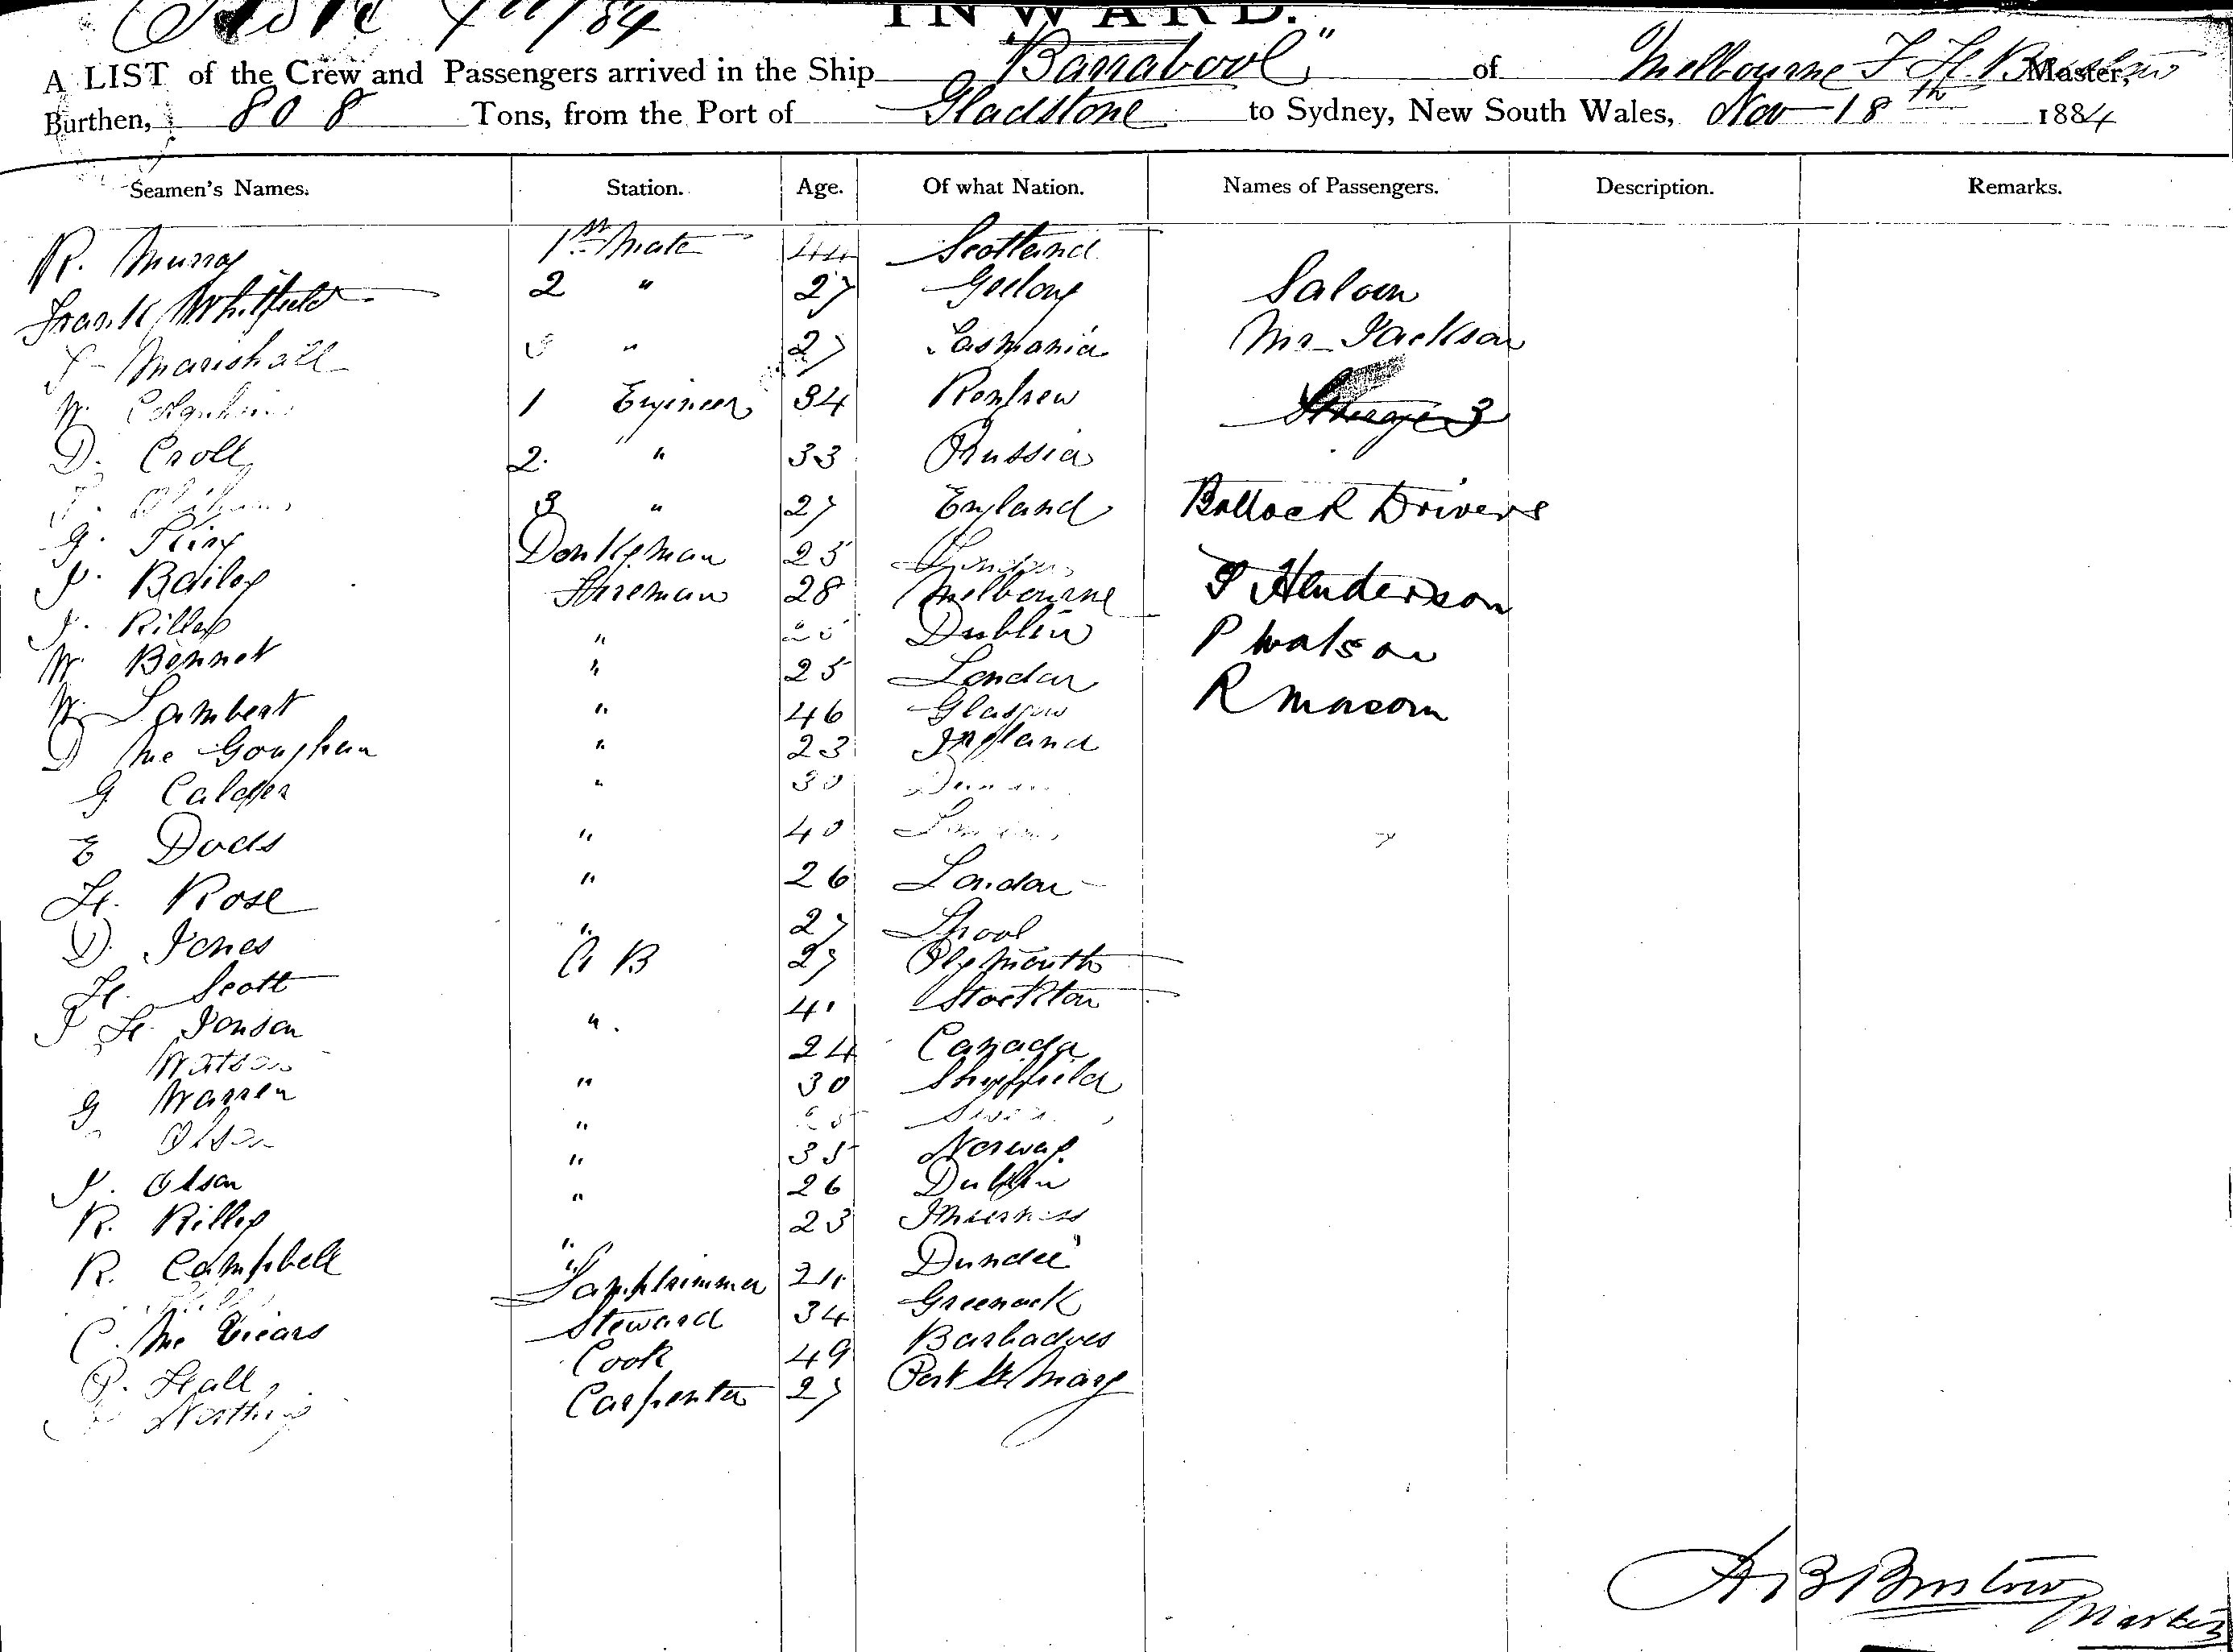 INWARD.
A LIST of the Crew and Passengers arrived in the Ship "Barrabool" of Melbourne Master,
Burthen, 808 Tons, from the Port of Gladstone to Sydney, New South Wales, Nov 18th 1884
Seamen's Names. Station. Age. Of what Nation. Names of Passengers. Description. Remarks.
R. Murray 1st Mate 44 Scotland
Frank Whitfield 2 " 27 Geelong Saloon
Marishall " 27 Tasmania Mr Jackson
W. 1 Engineer 34 Renfrew Steerage 3
D. Croll 2. " 33 Russia
3 " 27 England Bullock Drivers
G. King Donkeyman 25 London
J. Bailey Fireman 28 Melbourne Henderson
J. Rilley " Dublin P Watson
W. Bennet " 25 London R Mason
W. Lambert " 46 Glasgow
D Mc Goughan " 23 England
G Calder " 30
E Dods " 40 London
H. Rose " 26 London
D. Jones " 27 Lpool
H. Scott A B 27 Plymouth
J H. Jonson " 41 Stockton
Watson 24 Canada
G Warren " 30 Sheffield
Olson "
J. Olson " 35 Norway
R. Rilley " 26 Dublin
R. Campbell " 23 Inverness
" Lamptrimmer 21 Dundee
C. Mc Vicars Steward 34 Greenock
P. Hall Cook 49 Barbadoes
Carpenter 27 Port St Mary
Master